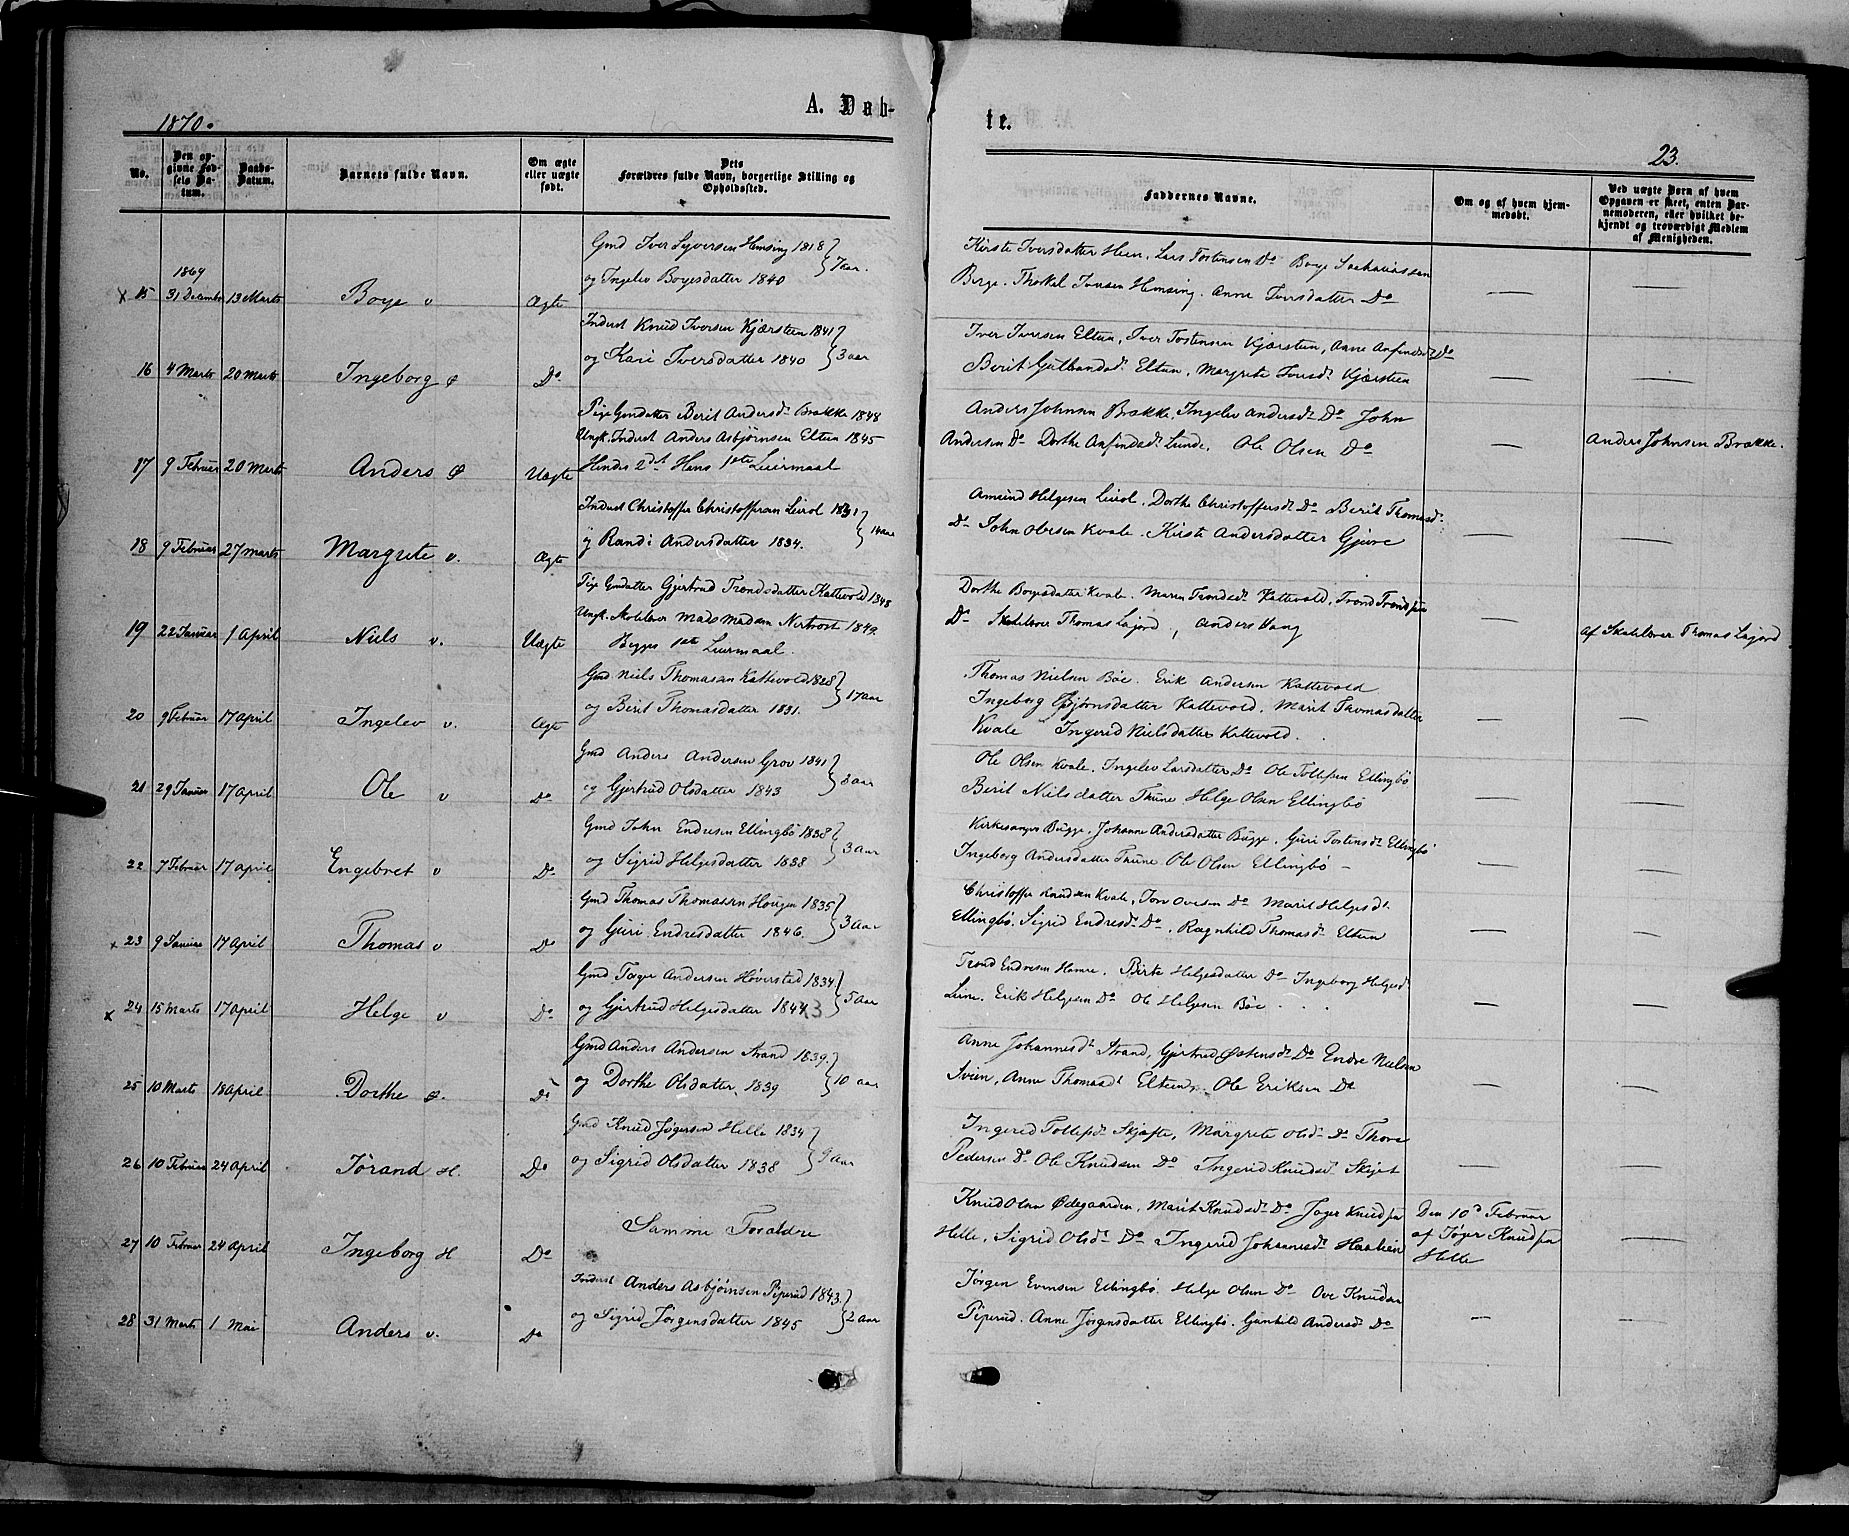 A. Døb-
te.
1870.
23.
No.
Den opgivne Fødsels Datum.
Daabs-Datum.
Barnets fulde Navn.
Om ægte eller uægte født.
Dets Forældres fulde Navn, borgerlige Stilling og Opholdssted.
Faddernes Navne.
Om og af hvem hjemmedøbt.
Ved uægte Børn af hvem Opgaven er skeet, enten Barnemoderen, eller hvilket bekjendt og troværdigt Medlem af Menigheden.
Gmd Iver Syversen Hemsing 1818 } 7 aar.
og Ingelev Boyesdatter 1840
1869
x 15 31 December 13 Marts Boye v Ægte
Kirste Iversdatter Heen, Lars Torstensen Do Boye Sachariassen
Berge. Thorkel Hemsing. Anne Iversdatter Do — —
Inderst Knud Iversen Kjærstein 1841 } 3 aar
og Kari Iversdatter 1840
16 4 Marts 20 Marts Ingeborg Ø Do
Iver Iversen Eltun, Iver Tostensen Kjærstein, Anne Anfindsd. Do
Berit Gulbrandsd. Eltun, Margrete Iversd. Kjærstein — —
Pige Gmdatter Berit Andersd. Brække 1848
Ungk. Inderst Anders Asbjørnsen Eltun 1845
Hendes 2det Hans 1ste Leiermaal
17 9 Februar 20 Marts Anders Ø Uægte
Anders Johnsen Brække, Ingelev Andersd. Do John
Andersen Do Dorthe Anfindsd. Lunde, Ole Olsen Do — Anders Johnsen Brække.
Inderst Christoffer Christoffersen Leirol 1831 } 14 aar
og Randi Andersdatter 1834.
18 9 Februar 27 Marts Margrete v. Ægte
Amund Helgesen Leirol. Dorthe Christoffersd. Do Berit Thomasd.
Do John Olsen Kvale. Kirste Andersdatter Gjuve — —
Pige Gmdatter Gjertrud Trondsdatter Kattevold 1848
Ungk. Skolelærer Mads Madsen Nertrost 1849.
Begges 1ste Leiermaal.
19 22 Januar 1 April Niels v. Uægte
Dorthe Boyesdatter Kvale. Maren Trondsd. Kattevold, Trond Trondsen
Do Skolelærer Thomas Lajord, Anders Vang — af Skolelærer Thomas Lajord
Gmd. Niels Thomasen Kattevold 1828 } 17 aar
og Berit Thomasdatter 1831.
20 9 Februar 17 April Ingelev v. Ægte
Thomas Nielsen Bøe. Erik Andersen Kattevold
Ingeborg Bjørnsdatter Kattevold, Marit Thomasdatter
Kvale Ingerid Nielsdatter Kattevold. — —
Gmd Anders Andersen Grov 1841 } 3 aar
og Gjertrud Olsdatter 1843
21 29 Januar 17 April Ole v Do
Ole Olsen Kvale. Ingelev Larsdatter Do Ole Tollefsen Ellingbø
Berit Nielsdatter Thune Helge Olsen Ellingbø — —
Gmd John Endresen Ellingbø 1838 } 3 aar
og Sigrid Helgesdatter 1838
22 7 Februar 17 April Engebret v Do
Kirkesanger Bugge, Johanne Andersdatter Bugge, Guri Tostensd. Ellingbø
Ingeborg Andersdatter Thune Ole Olsen Ellingbø — — —
Gmd Thomas Thomassen Hougen 1835 } 3 aar
og Guri Endresdatter 1846.
x 23 9 Januar 17 April Thomas v Do
Christoffer Knudsen Kvale, Tore Ovesen Do Marit Helgesd.
Ellingbø, Sigrid Endresd. Do, Ragnhild Thomasd. Eltun — —
Gmd Tager Andersen Høverstad 1834 } 5 aar
og Gjertrud Helgesdatter 18443
x 24 15 Marts 17 April Helge v Do
Trond Endresen Hamre, Birte Helgesdatter Do Ingeborg Helgesd.
Lien. Erik Helgesen Do Ole Helgesen Bøe — —
Gmd Anders Andersen Strand 1839. } 10 aar
og Dorthe Olsdatter. 1839
25 10 Marts 18 April Dorthe Ø. Do
Anne Johannesd. Strand, Gjertrud Østensd. Do Endre Nielsen
Svien, Anne Thomasd. Eltun, Ole Eriksen Do — —
Gmd Knud Jøgersen Helle 1834 } 9 aar
og Sigrid Olsdatter 1838
26 10 Februar 24 April Jørand H. Do
Ingerid Tollefsd. Skjefte, Margrete Olsd. Do Thore
Pedersen Do Ole Knudsen Do Ingerid Knudsd. Skjet — —
Samme Forældre
27 10 Februar 24 April Ingeborg H Do
Knud Olsen Ødegaarden, Marit Knudsd. Do Jøger Knudsen
Helle, Sigrid Olsd. Do Ingerid Johannesd. Haalien
Den 10de Februar
af Jøger Knudsen
Helle —
Inderst Anders Asbjørnsen Piperud 1843 } 2 aar
og Sigrid Jørgensdatter 1845
28 31 Marts 1 Mai Anders v. Do
Jørgen Evensen Ellingbø. Helge Olsen Do Ove Knudsen
Piperud. Anne Jørgensdatter Ellingbø. Gunhild Andersd. Do — —